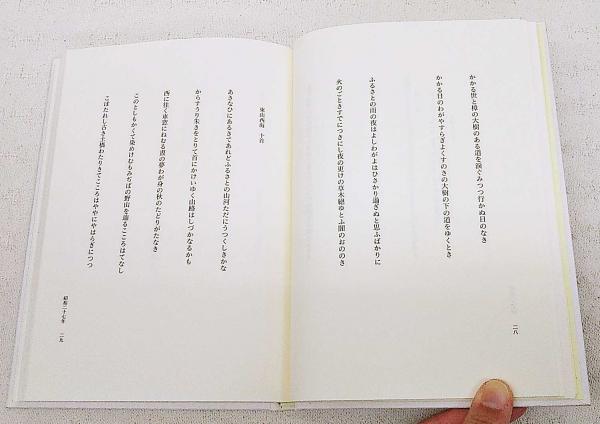 かかる世と樟の大樹のある道を涙ぐみつつ行かぬ日のなき
かかる日のわがやすらぎよくすのきの大樹の下の道をゆくとき
ふるさとの雨の夜はよしわがよはひさかり過ぎぬと思ふばかりに
火のごときすでにつきにし夜の更けの草木絶ゆとふ闇のおののき
二八
東山西街 十首
あきなひにあるきてあれどふるさとの山河ただにうつくしきかな
からすうり朱きをとりて首にかけいゆく山路はしづかなるかも
西に往く車窓にねむる衷の夢わが身の秋のたどりがたなき
このとしもかくて染めけむもみぢばの野山を辿るこころはてなし
こぼたれし古き土橋わたりきてこころはややにやはらぎにつつ
昭和二十七年 二九